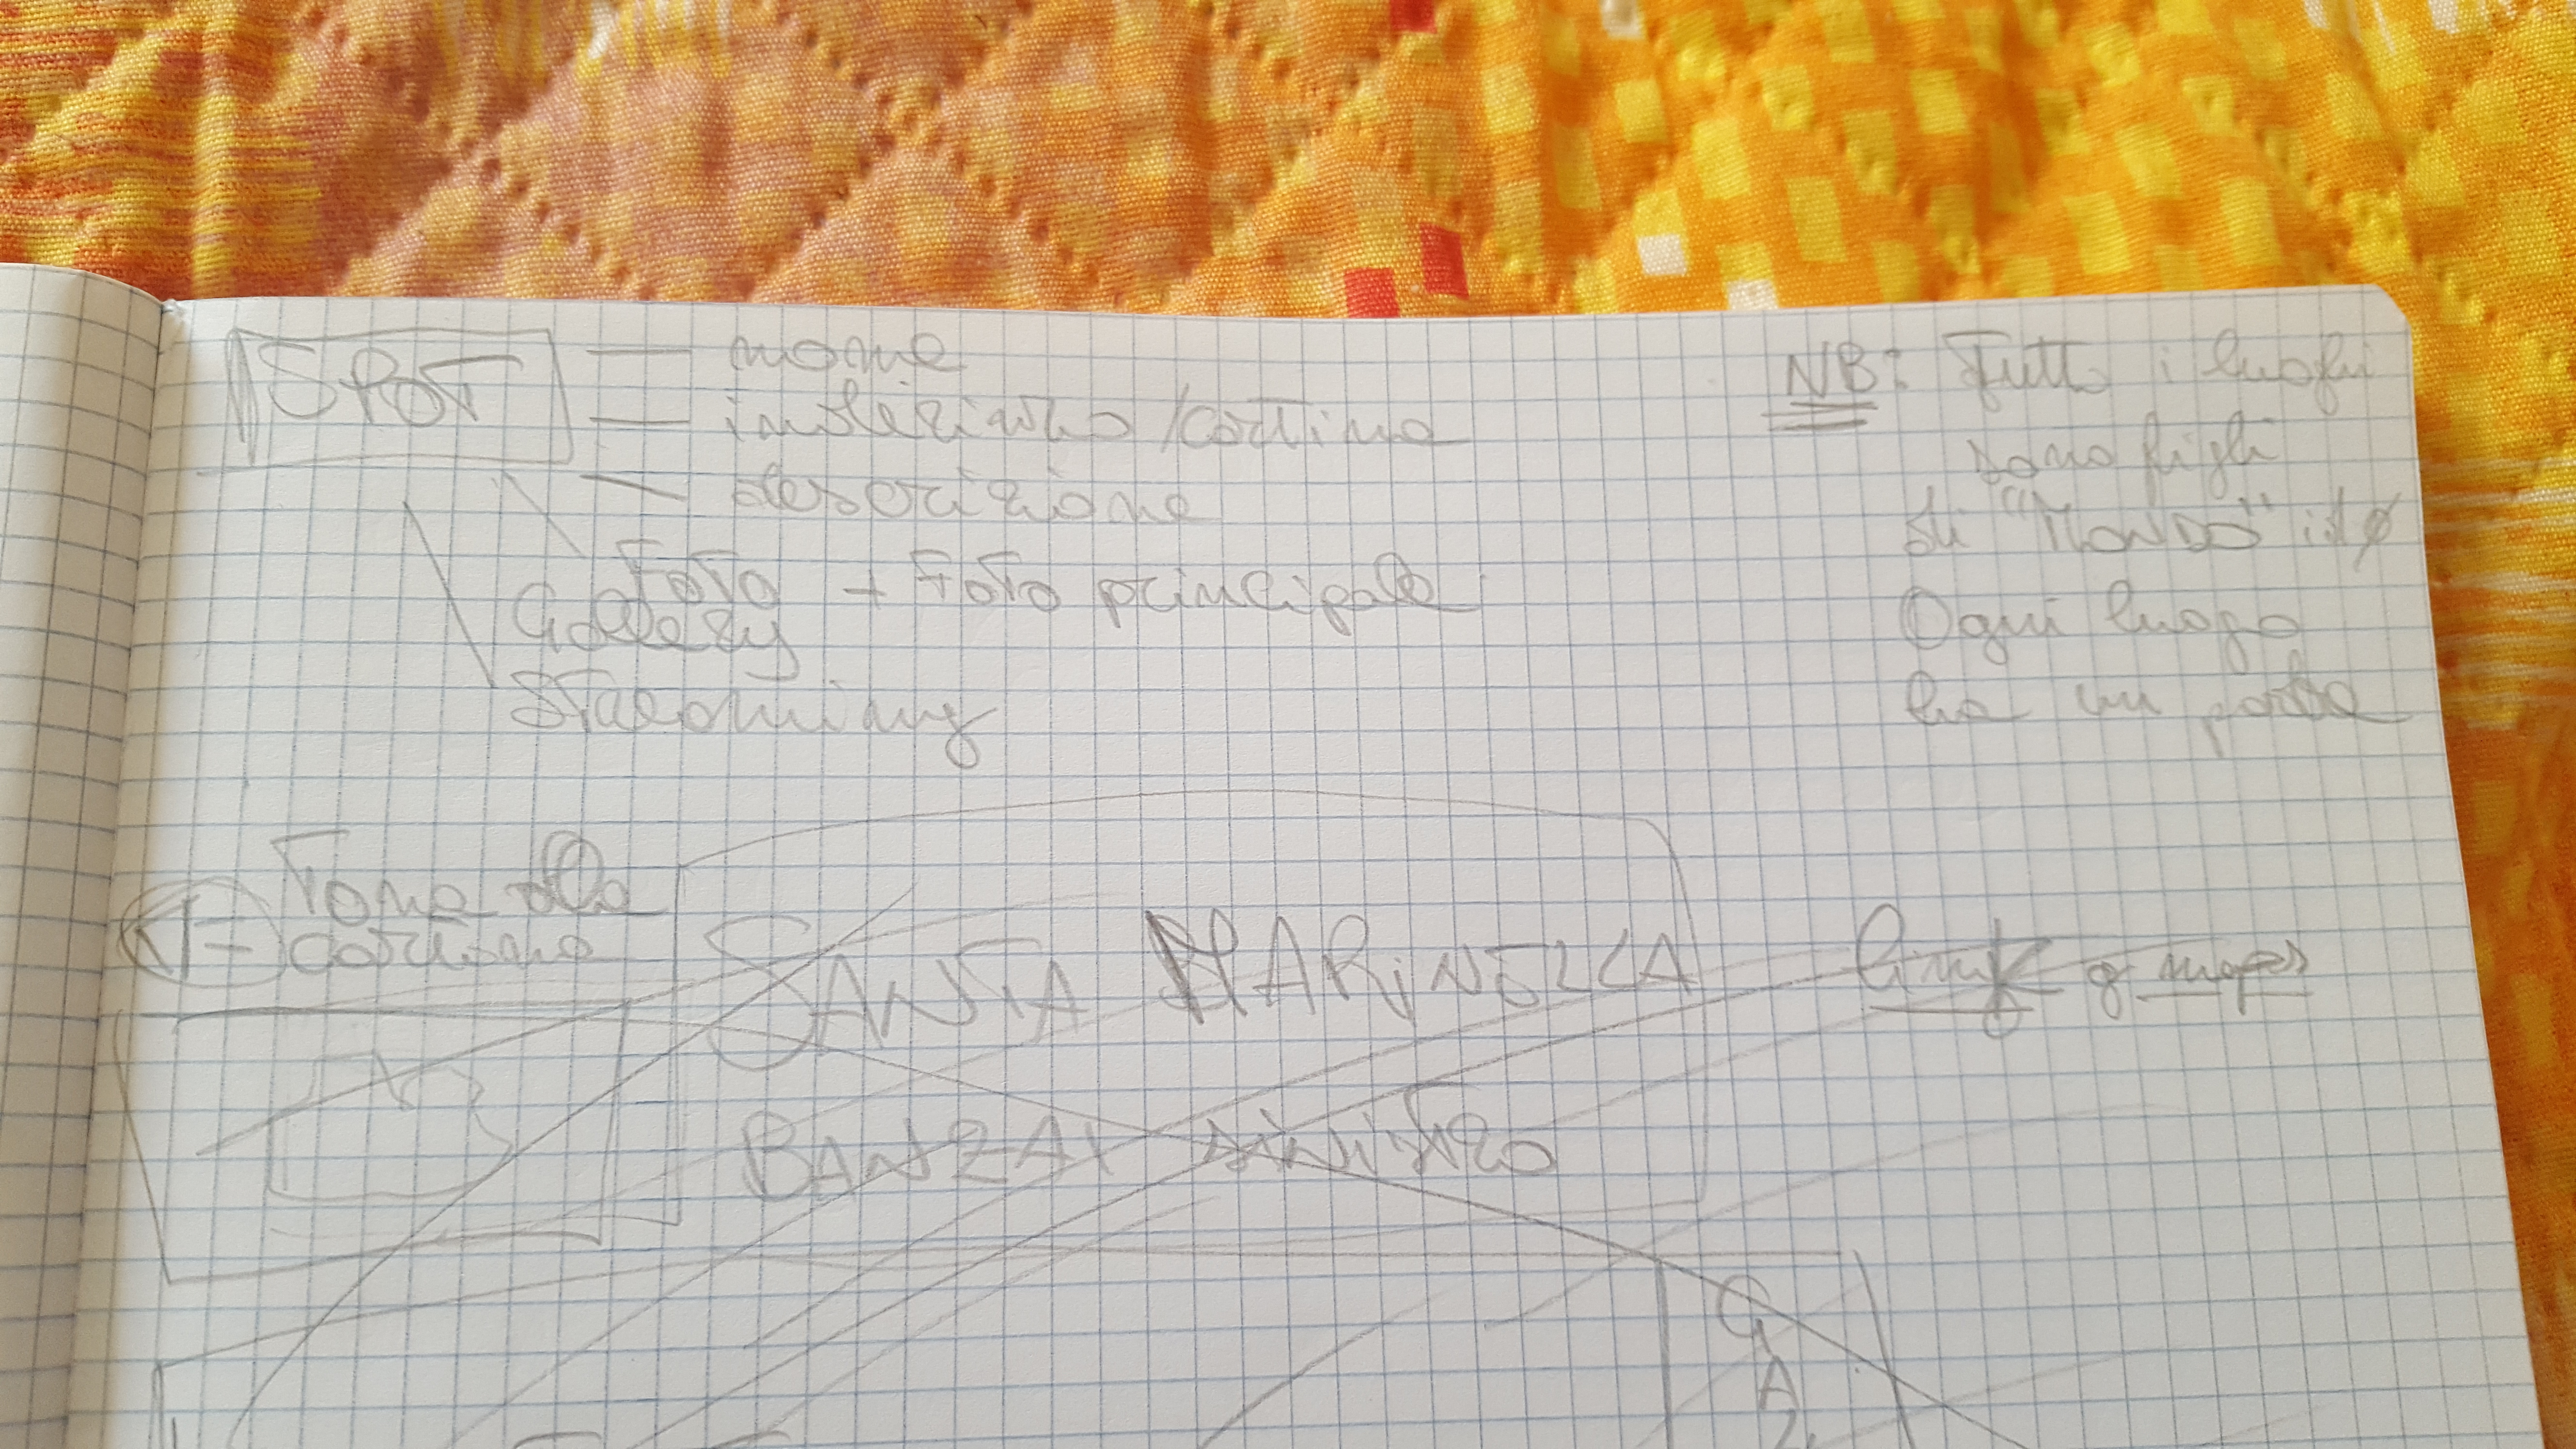 SPOT
nome
indirizzo/cartina
descrizione
Foto + Foto principale
Gallery
Streaming
NB: Tutti i luoghi
sono figli
di "MONDO" id 0
Ogni luogo
ha un padre
Torna alla
cartina
SANTA MARINELLA
link g maps
BANZAI sinistro
G
A